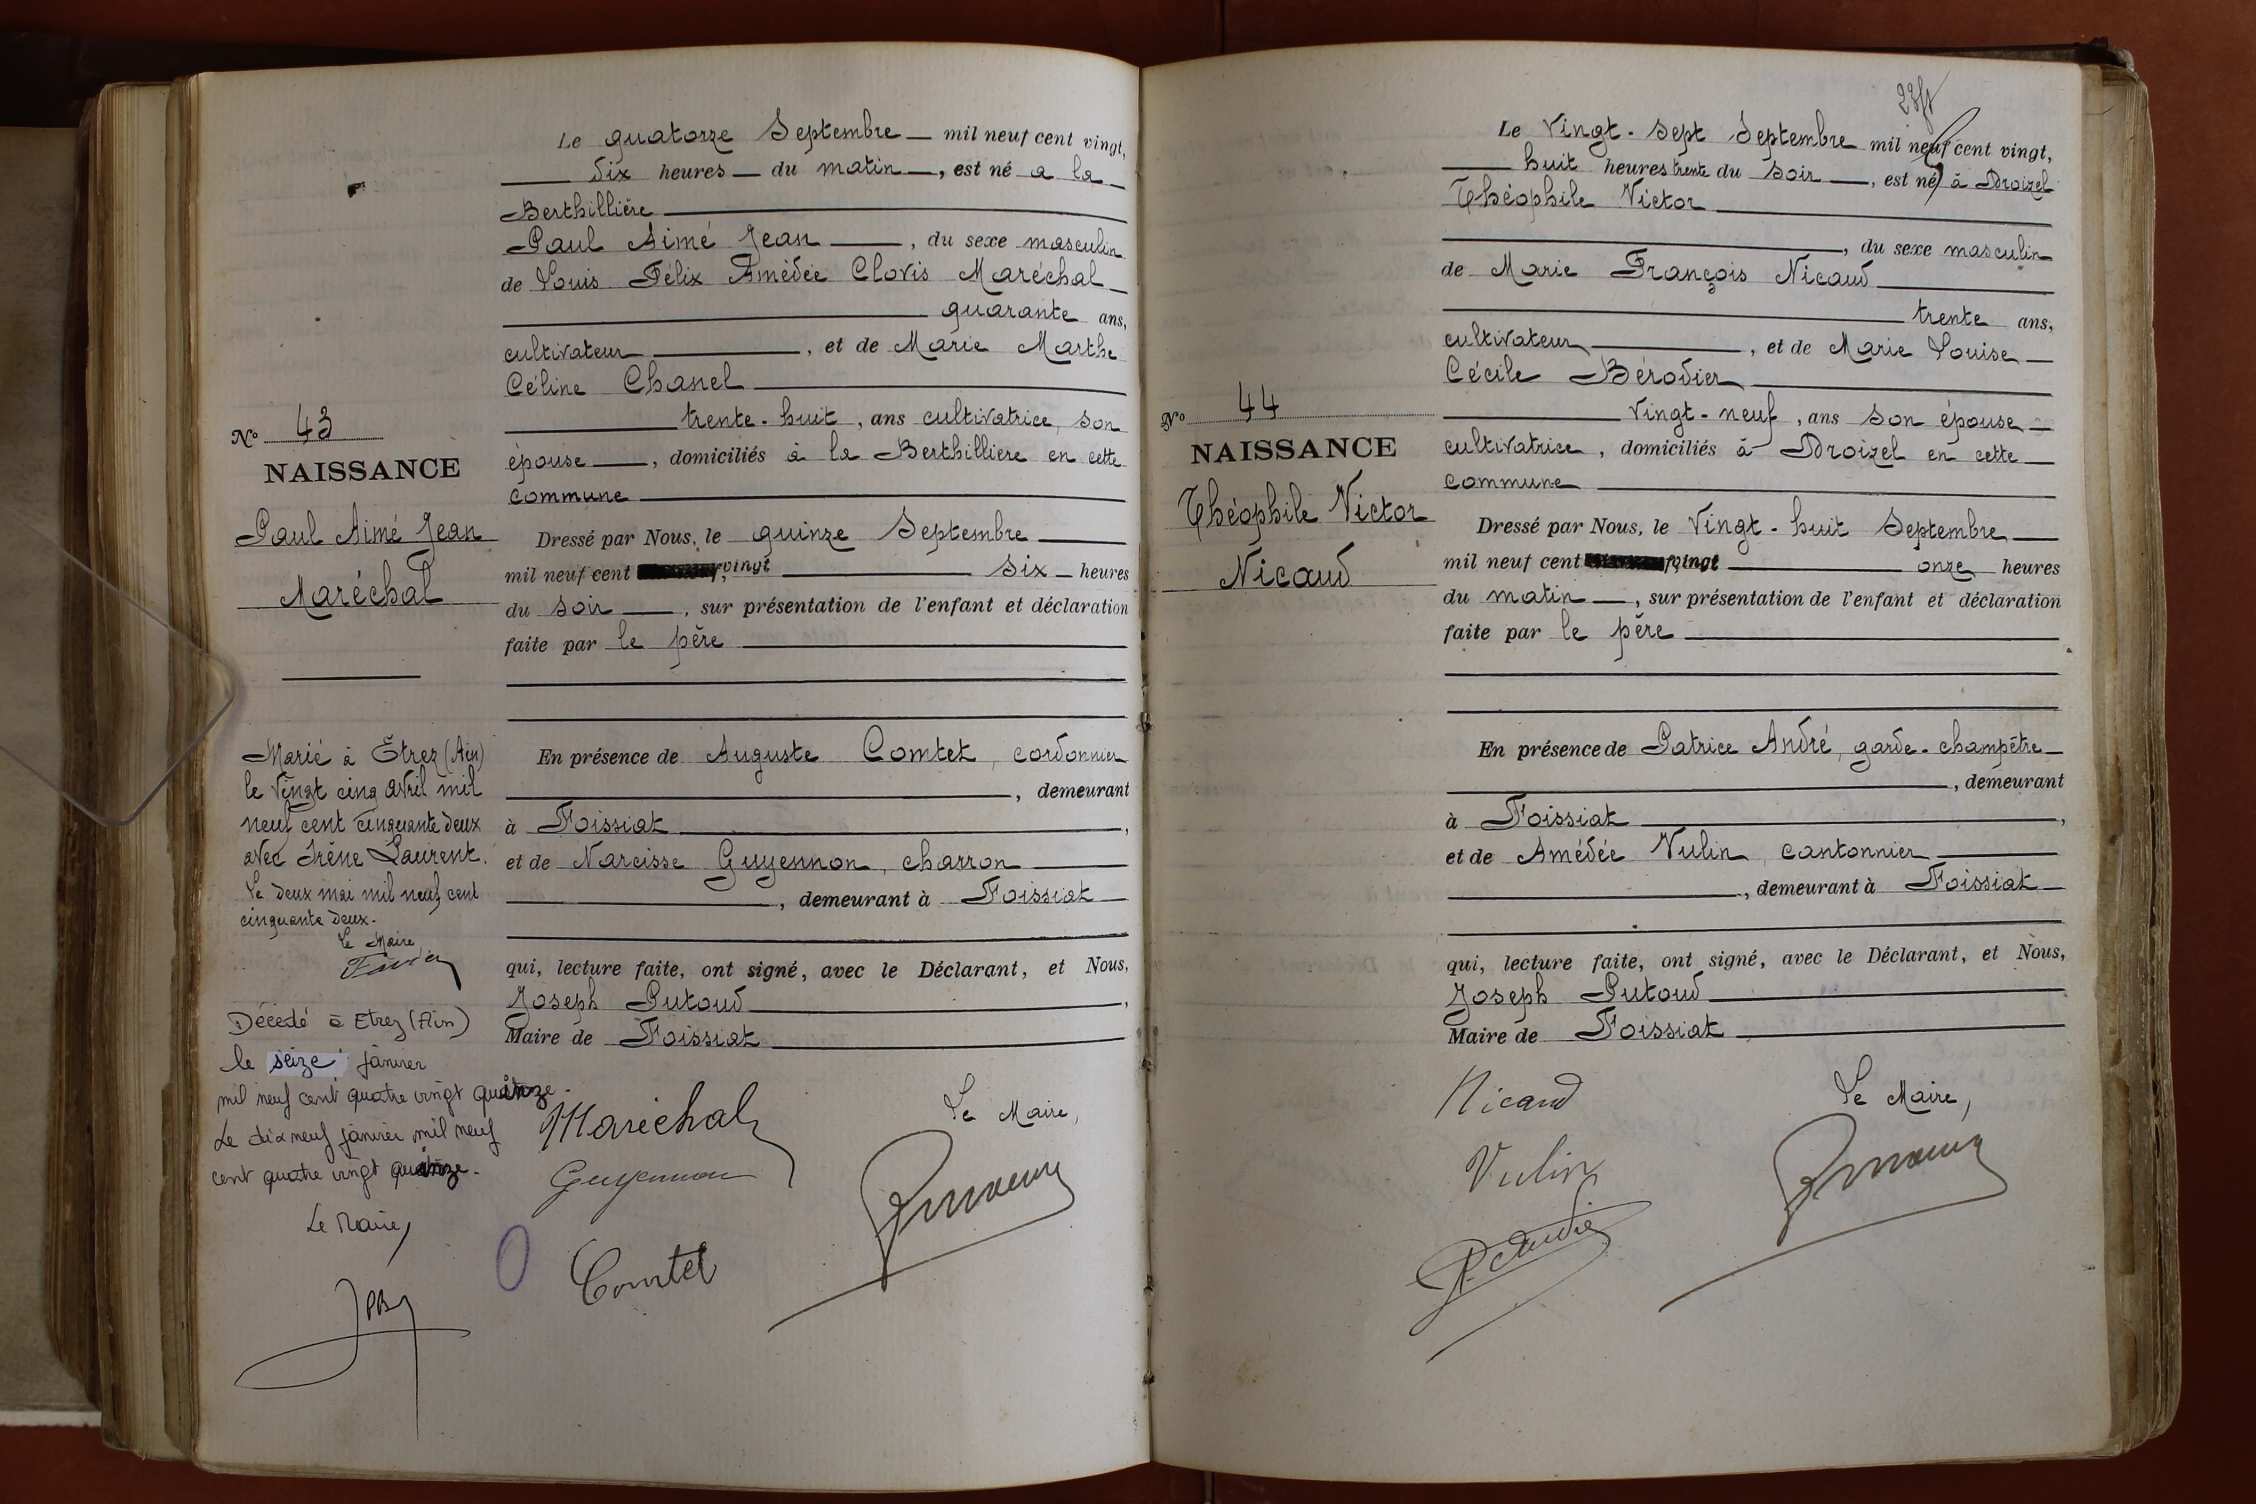 Le quatorze Septembre mil neuf cent vingt,
dix heures du matin, est né a la
Berthillière
Paul Aimé Jean, du sexe masculin
de Louis Félix Amédée Clovis Maréchal
quarante ans,
cultivateur, et de Marie Marthe
Céline Chanel
trente-huit, ans cultivatrice, son
épouse, domiciliés à la Berthilliere en cette
commune
Dressé par Nous, le quinze Septembre
mil neuf cent vingt six heures
du soir, sur présentation de l'enfant et déclaration
faite par le père
En présence de Auguste Comtet, cordonnier
, demeurant
à Foissiat,
et de Narcisse Guyennon, charron
, demeurant à Foissiat
qui, lecture faite, ont signé, avec le Déclarant, et Nous,
Joseph Putoud,
Maire de Foissiat
Maréchal
Guyennon
Comtet
Le Maire,
No 43
NAISSANCE
Paul Aimé Jean
Maréchal
Marié à Etrez (Ain)
le vingt cinq avril mil
neuf cent cinquante deux
avec Irène Laurent.
Le deux mai mil neuf cent
cinquante deux.
Le Maire
Décédé à Etrez (Ain)
le seize janvier
mil neuf cent quatre vingt quinze.
Le dix neuf janvier mil neuf
cent quatre vingt quinze.
Le Maire,
Le vingt-sept Septembre mil neuf cent vingt,
huit heures trente du soir, est né à Droizel
Théophile Victor
, du sexe masculin
de Marie François Nicaud
trente ans,
cultivateur, et de Marie Louise
Cécile Bérodier
vingt-neuf, ans son épouse
cultivatrice, domiciliés à Droizel en cette
commune
Dressé par Nous, le vingt-huit Septembre
mil neuf cent vingt onze heures
du matin, sur présentation de l'enfant et déclaration
faite par le père
En présence de Patrice André, garde-champêtre
, demeurant
à Foissiat,
et de Amédée Vulin, cantonnier
, demeurant à Foissiat
qui, lecture faite, ont signé, avec le Déclarant, et Nous,
Joseph Putoud
Maire de Foissiat
Nicaud
Vulin
Le Maire,
No 44
NAISSANCE
Théophile Victor
Nicaud